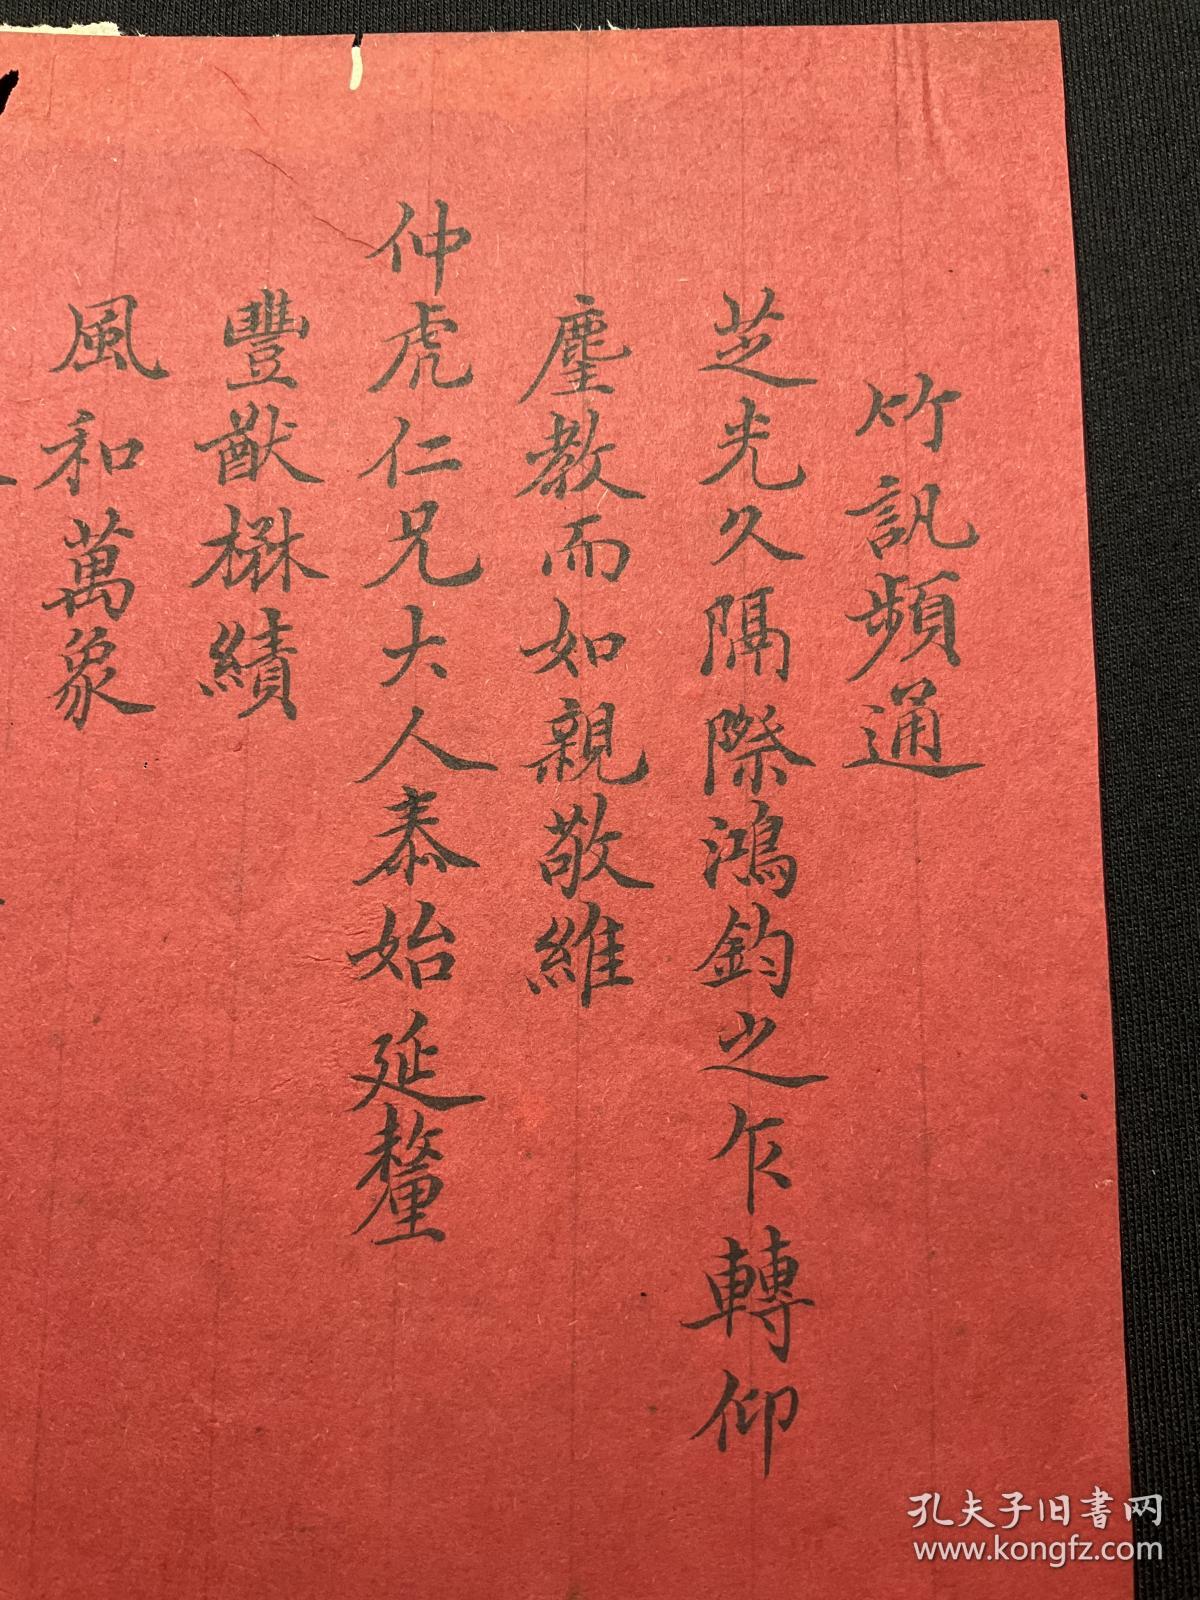 竹訊頻通
芝光久隔際鴻鈞之乍轉仰
麈教而如親敬維
仲虎仁兄大人泰始延釐
豐猷楙績
風和萬象
孔夫子旧书网
www.kongfz.com